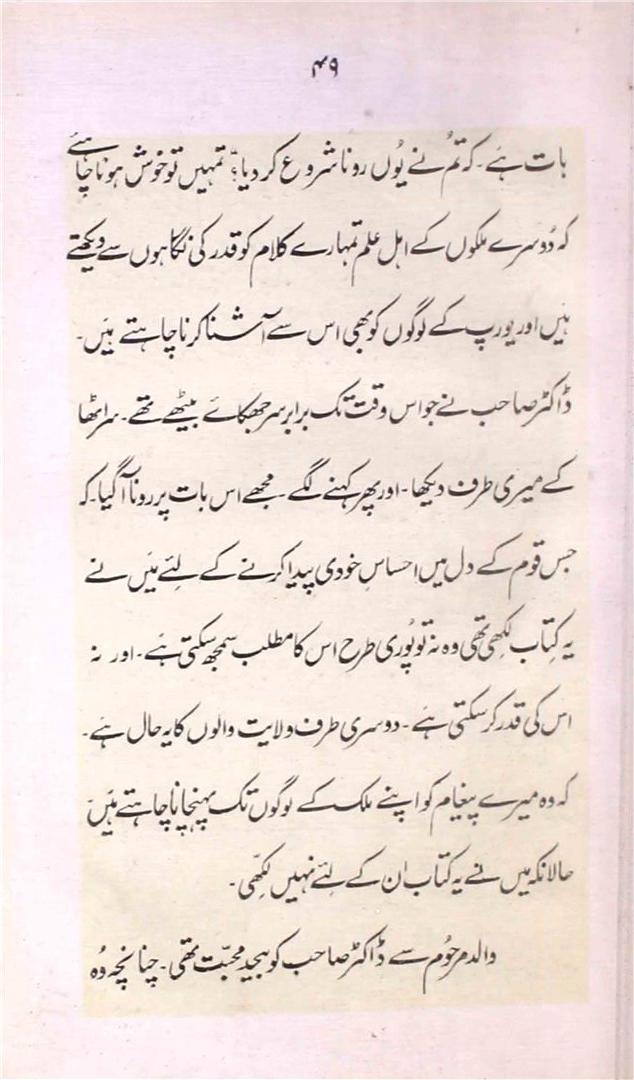 ۴۹
بات ہے۔ کہ تم نے یُوں رونا شروع کر دیا؟ تمہیں تو خوش ہونا چاہئے
کہ دُوسرے ملکوں کے اہل علم تمہارے کلام کو قدر کی نگاہوں سے دیکھتے
ہیں اور یورپ کے لوگوں کو بھی اس سے آشنا کرنا چاہتے ہیں۔
ڈاکٹر صاحب نے جو اس وقت تک برابر سر جھکائے بیٹھے تھے۔ سر اٹھا
کے میری طرف دیکھا۔ اور پھر کہنے لگے۔ مجھے اس بات پر رونا آگیا۔ کہ
جس قوم کے دل میں احساسِ خودی پیدا کرنے کے لِئے مَیں نے
یہ کِتاب لکھی تھی وہ نہ تو پُوری طرح اس کا مطلب سمجھ سکتی ہے۔ اور نہ
اس کی قدر کر سکتی ہے۔ دوسری طرف ولایت والوں کا یہ حال ہے۔
کہ وہ میرے پیغام کو اپنے ملک کے لوگوں تک پہنچانا چاہتے ہیں
حالانکہ میں نے یہ کتاب اُن کے لِئے نہیں لکھّی۔
والد مرحُوم سے ڈاکٹر صاحب کو بیحد محبّت تھی۔ چنانچہ وُہ